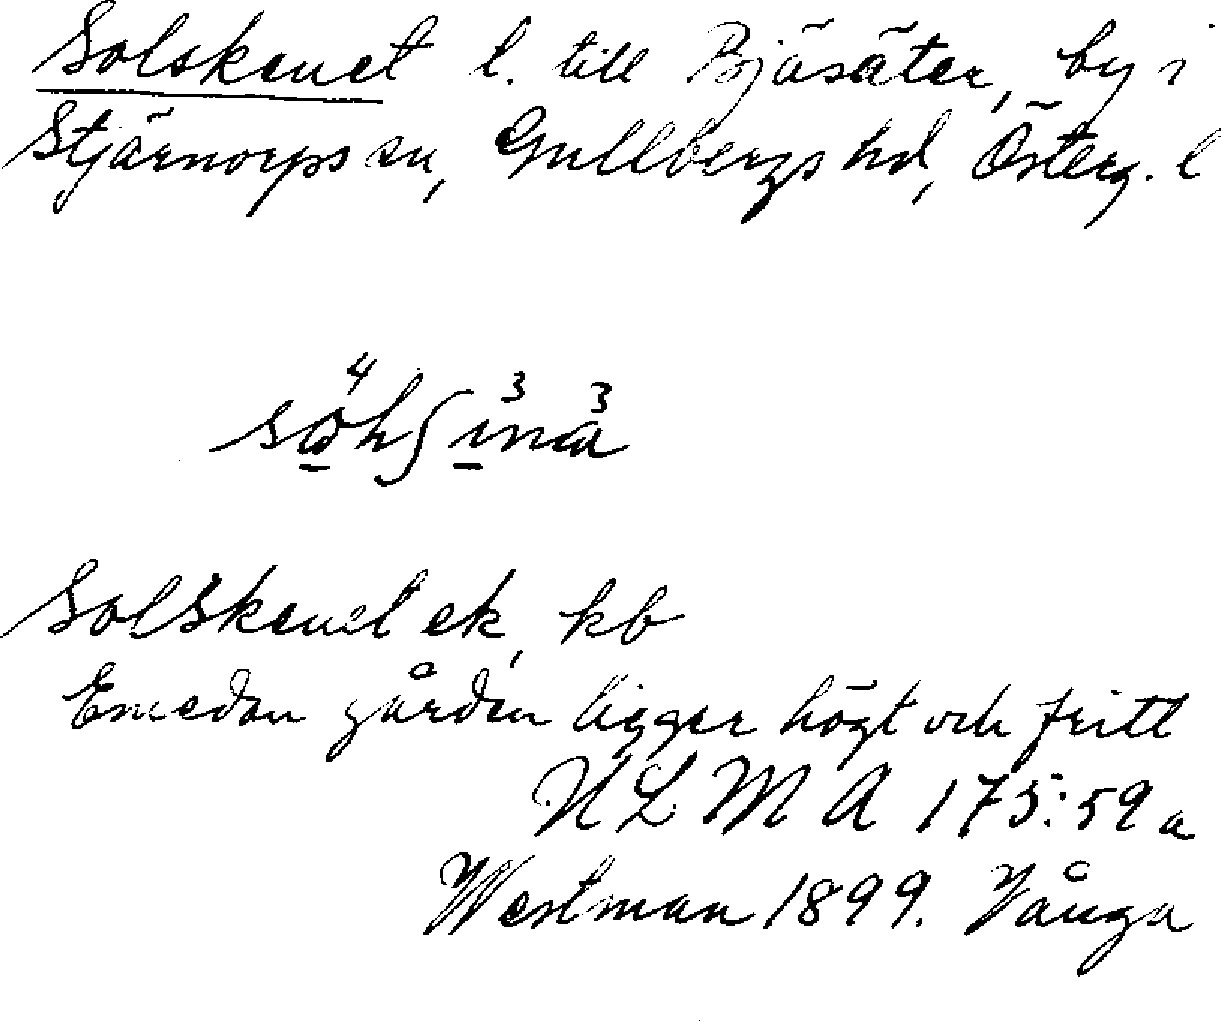 Solskenet l. till Bjäsäter, by i
Stjärnorps sn, Gullbergs hd, Österg. l
Solskenet ek, kb
Emedan gården ligger högt och fritt
ULMA 175:59a
Westman 1899. Vånga